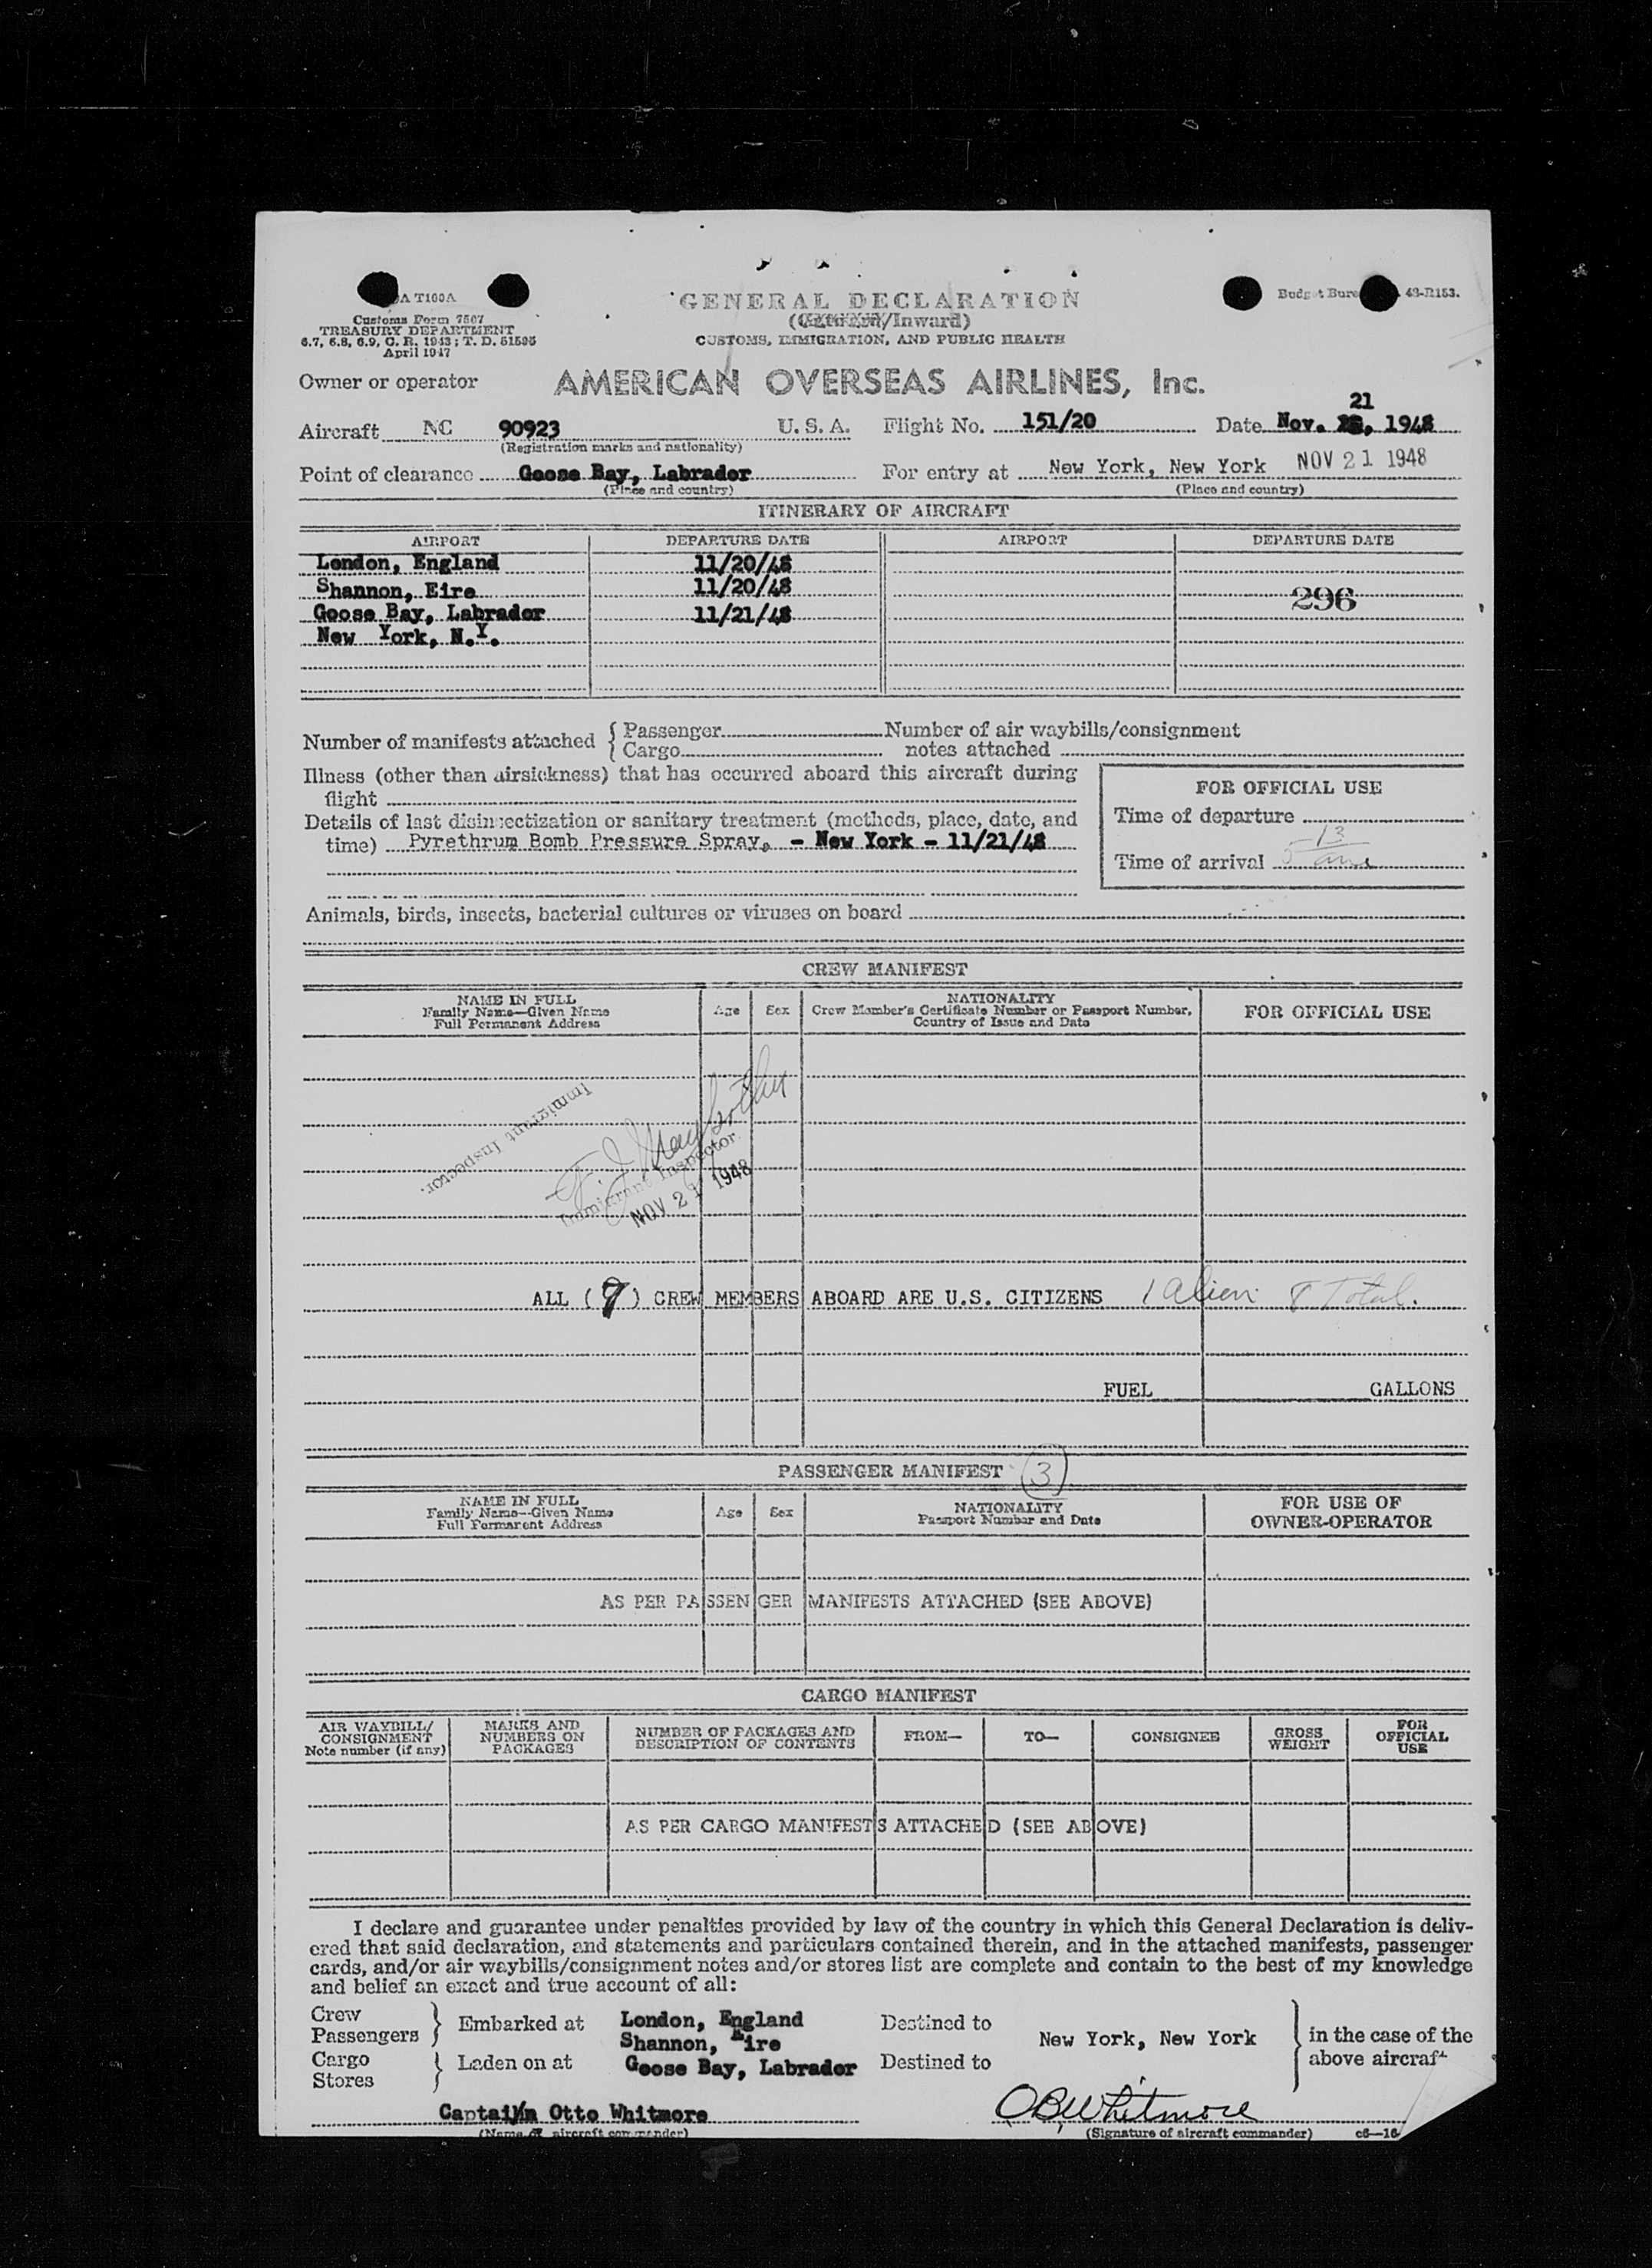 A T100A
Customs Form 7507
TREASURY DEPARTMENT
6.7, 6.8, 6.9, C. R. 1943; T. D. 51595
April 1947
GENERAL DECLARATION
(Outward/Inward)
CUSTOMS, IMMIGRATION, AND PUBLIC HEALTH
Budget Bure 48-R153.
Owner or operator AMERICAN OVERSEAS AIRLINES, Inc.
21
Aircraft NC 90923 U. S. A. Flight No. 151/20 Date Nov. , 1948
(Registration marks and nationality)
Point of clearance Goose Bay, Labrador For entry at New York, New York NOV 21 1948
(Place and country) (Place and country)
ITINERARY OF AIRCRAFT
AIRPORT DEPARTURE DATE AIRPORT DEPARTURE DATE
London, England 11/20/48
Shannon, Eire 11/20/48 296
Goose Bay, Labrador 11/21/48
New York, N.Y.
Number of manifests attached { Passenger Number of air waybills/consignment
Cargo notes attached
Illness (other than airsickness) that has occurred aboard this aircraft during
flight
FOR OFFICIAL USE
Details of last disinsectization or sanitary treatment (methods, place, date, and
time) Pyrethrum Bomb Pressure Spray, - New York - 11/21/48
Time of departure
Time of arrival 5 13 am
Animals, birds, insects, bacterial cultures or viruses on board
CREW MANIFEST
NAME IN FULL
Family Name—Given Name
Full Permanent Address
Age Sex
NATIONALITY
Crew Member's Certificate Number or Passport Number,
Country of Issue and Date
FOR OFFICIAL USE
Immigrant Inspector.
Immigrant Inspector
NOV 21 1948
ALL (7) CREW MEMBERS ABOARD ARE U.S. CITIZENS 1 alien 8 Total.
FUEL GALLONS
PASSENGER MANIFEST 3
NAME IN FULL
Family Name—Given Name
Full Permanent Address
Age Sex
NATIONALITY
Passport Number and Date
FOR USE OF
OWNER-OPERATOR
AS PER PASSENGER MANIFESTS ATTACHED (SEE ABOVE)
CARGO MANIFEST
AIR WAYBILL/
CONSIGNMENT
Note number (if any)
MARKS AND
NUMBERS ON
PACKAGES
NUMBER OF PACKAGES AND
DESCRIPTION OF CONTENTS
FROM—
TO—
CONSIGNEE
GROSS
WEIGHT
FOR
OFFICIAL
USE
AS PER CARGO MANIFESTS ATTACHED (SEE ABOVE)
I declare and guarantee under penalties provided by law of the country in which this General Declaration is deliv-
ered that said declaration, and statements and particulars contained therein, and in the attached manifests, passenger
cards, and/or air waybills/consignment notes and/or stores list are complete and contain to the best of my knowledge
and belief an exact and true account of all:
Crew
Passengers } Embarked at London, England Destined to
Shannon, Eire New York, New York } in the case of the
Cargo
Stores } Laden on at Goose Bay, Labrador Destined to above aircraft
Captain Otto Whitmore OBWhitmore
(Name of aircraft commander) (Signature of aircraft commander) c6—16